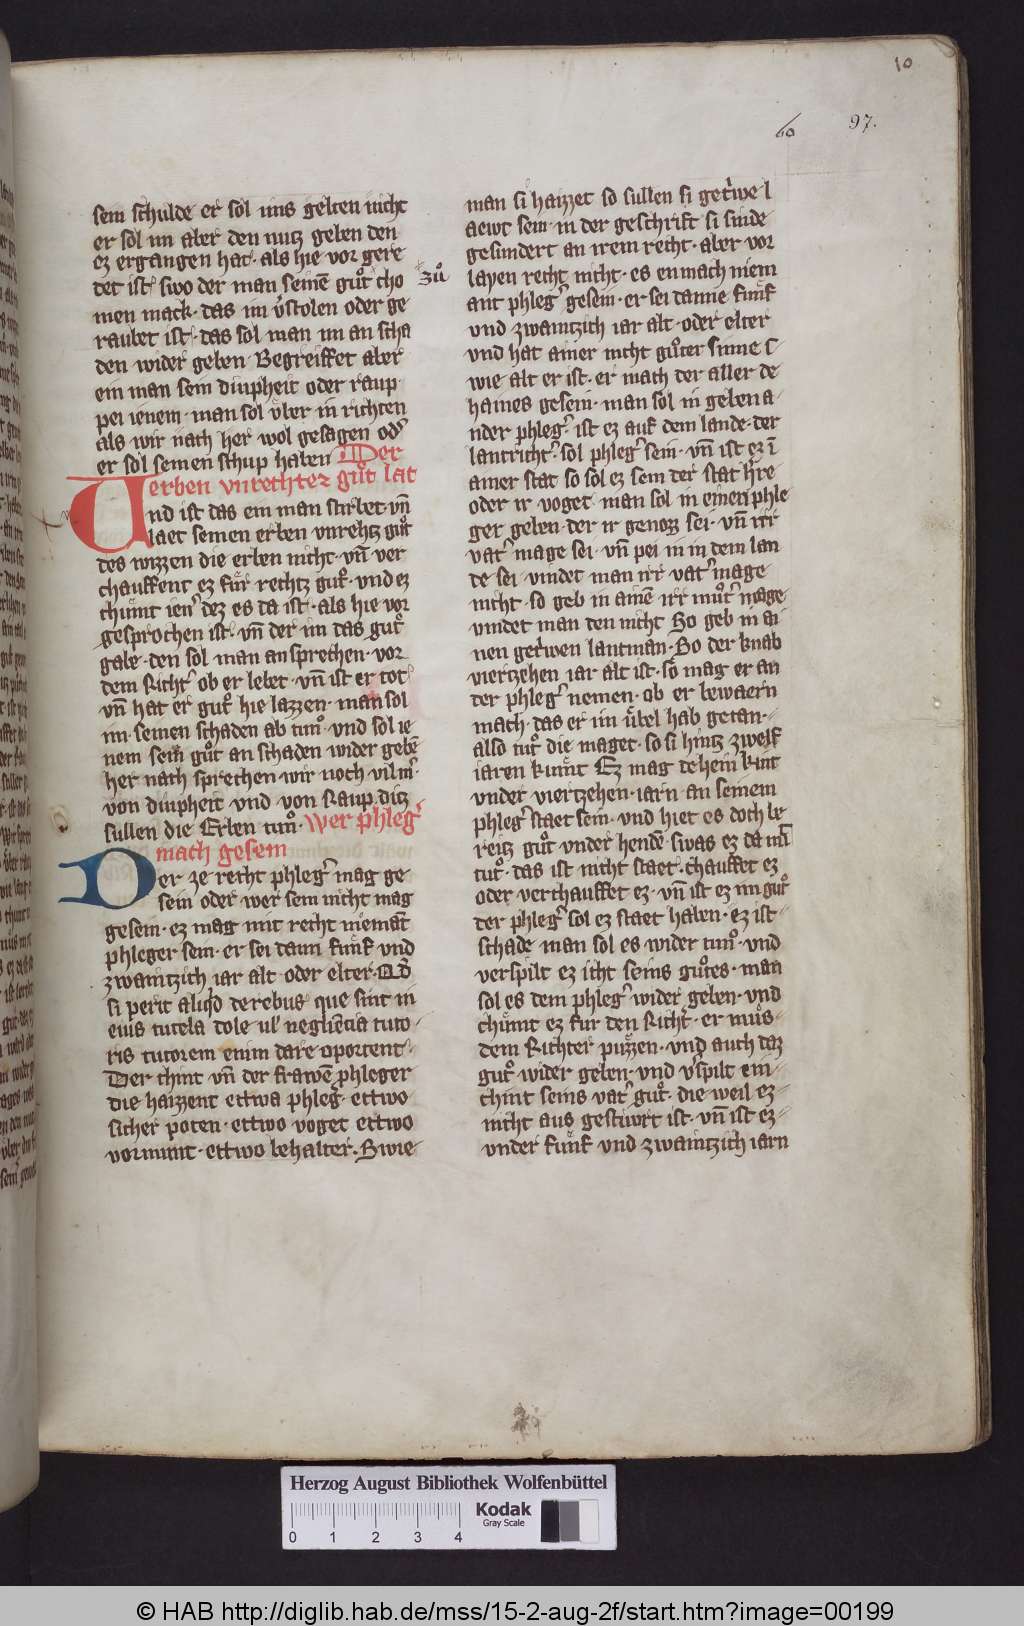 10
60 97.
sein schulde er sol uns gelten nicht
er sol im aber den nutz geben den
ez ergangen hat · als hie vor gere
zuͦ
tet ist · swo der man seinē guͦt cho
men mack · das im vͤstolen oder ge
raubet ist · das sol man im an scha
den wider geben · Begreiffet aber
ein man sein diupheit oder raup
pei ienem · man sol uͤber in richten
als wir nach her wol gesagen odˀ
er sol seinen schup haben Der
erben vnrechtez guͦt lat
Und ist das ein man stirbet · vn̄
laet seinen erben vnrehtz guͦt
des wizzen die erben nicht · vn̄ ver
chauffent ez fuͤr rechtz guͦt · vnd ez
chuͤmt ienˀ dez es da ist · als hie vor
gesprochen ist · vn̄ der im das guͦt
gabe · den sol man ansprechen · vor
dem Richtˀ ob er lebet · vn̄ ist er tot
vn̄ hat er guͦt hie lazzen · man sol
im seinen schaden ab tuͦn · vnd sol ie
nem sein guͦt an schaden wider gebē
her nach sprechen wir noch vil mˀ
von diupheit vnd von Raup · ditz
sullen die Erben tuͦn · Wer phlegˀ
mach gesein
Der ze recht phlegˀ mag ge
sein oder wer sein nicht mag
gesein · ez mag mit recht niemāt
phleger sein · er sei dann fuͤnf und
zwaintzich iar alt oder elter ·
si perit de rebus que sint in
eius tutela dole ul' negligēcia tuto
ris tutorem enim dare oportent ·
Der chint vn̄ der frawē phleger
die haizzent ettwa phlegˀ · ettwo
sicher poten · ettwo voget ettwo
vormunt · ettwo behalter · Swie
man si haizzet so sullen si getriwe l
aewt sein · in der geschrift si sinde
gesundert an irem recht · aber vor
layen recht nicht · es en mach niem
ant phlegˀ gesein · er sei danne fuͤnf
vnd zwaintzich iar alt · oder elter
vnd hat ainer nicht guͦter sinne
wie alt er ist · er mach der aller de
haines gesein · man sol in geben a
nder phlegˀ · ist ez auf dem lande · der
lantrichtˀ · sol phlegˀ sein · vn̄ ist ez ī
ainer stat so sol ez sein der stat hˀre
oder ir voget · man sol in einen phle
ger geben · der ir genozz sei · vn̄ irr
vatˀ mage sei · vn̄ pei in in dem lan
de sei · vindet man irr vatˀ mage
nicht · so geb in ainē irr muͦtˀ mage
vindet man den nicht So geb in ai
nen getriwen lantman · So der knab
viertzehen iar alt ist · so mag er an
der phlegˀ nemen · ob er bewaern
mach · das er im uͤbel hab getan ·
also tuͦt die maget · so si hintz zwelf
iaren kuͤmt Ez mag dehein kint
vnder viertzehen · iarn an seinem
phlegˀ staet sein · vnd hiet es doch be
reitz guͦt vnder hende · swas ez da mit
tuͦt · das ist nicht staet · chauffet ez
oder verchauffet ez · vn̄ ist ez im guͦt
der phlegˀ sol ez staet haben · ez ist
schade man sol es wider tuͦn · vnd
verspilt ez icht seins guͦtes · man
sol es dem phlegˀ wider geben · vnd
chuͤmt ez fur den Richtˀ · er muͦs
dem Richter puͤzzen · vnd auch daz
guͦt wider geben · vnd vˀspilt ein
chint seins vatˀ guͦt · die weil ez
nicht aus gestiwrt ist · vn̄ ist ez
vnder fuͤnf vnd zwaintzich iarn
Herzog August Bibliothek Wolfenbüttel
0 1 2 3 4
Kodak
Gray Scale
© HAB http://diglib.hab.de/mss/15-2-aug-2f/start.htm?image=00199